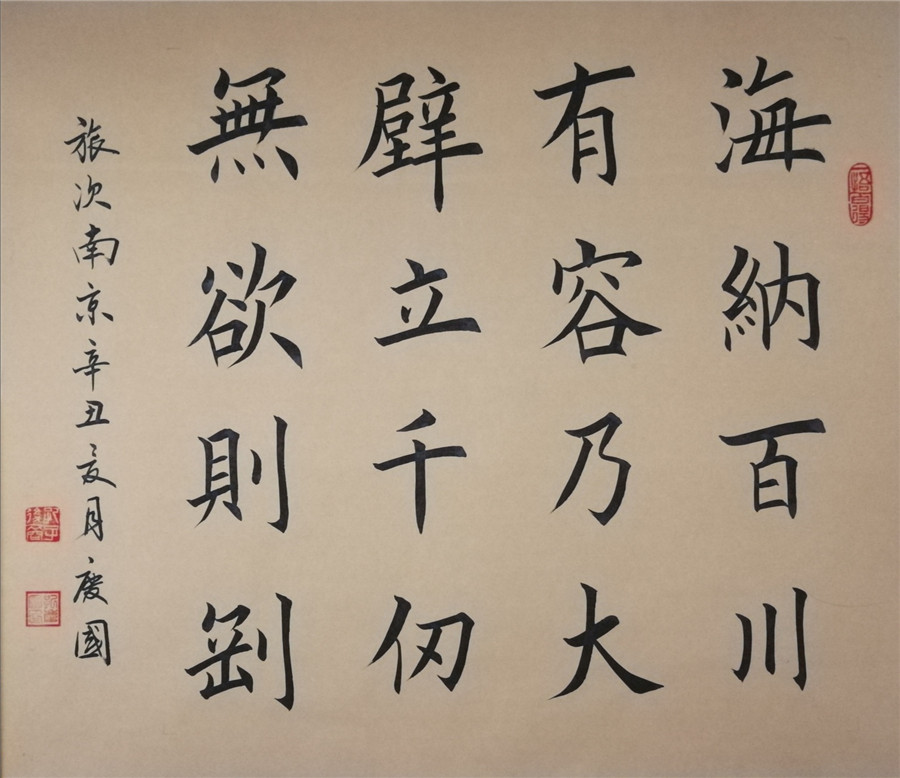 海納百川
有容乃大
壁立千仞
無欲則剛
旅次南京辛丑亥月慶國